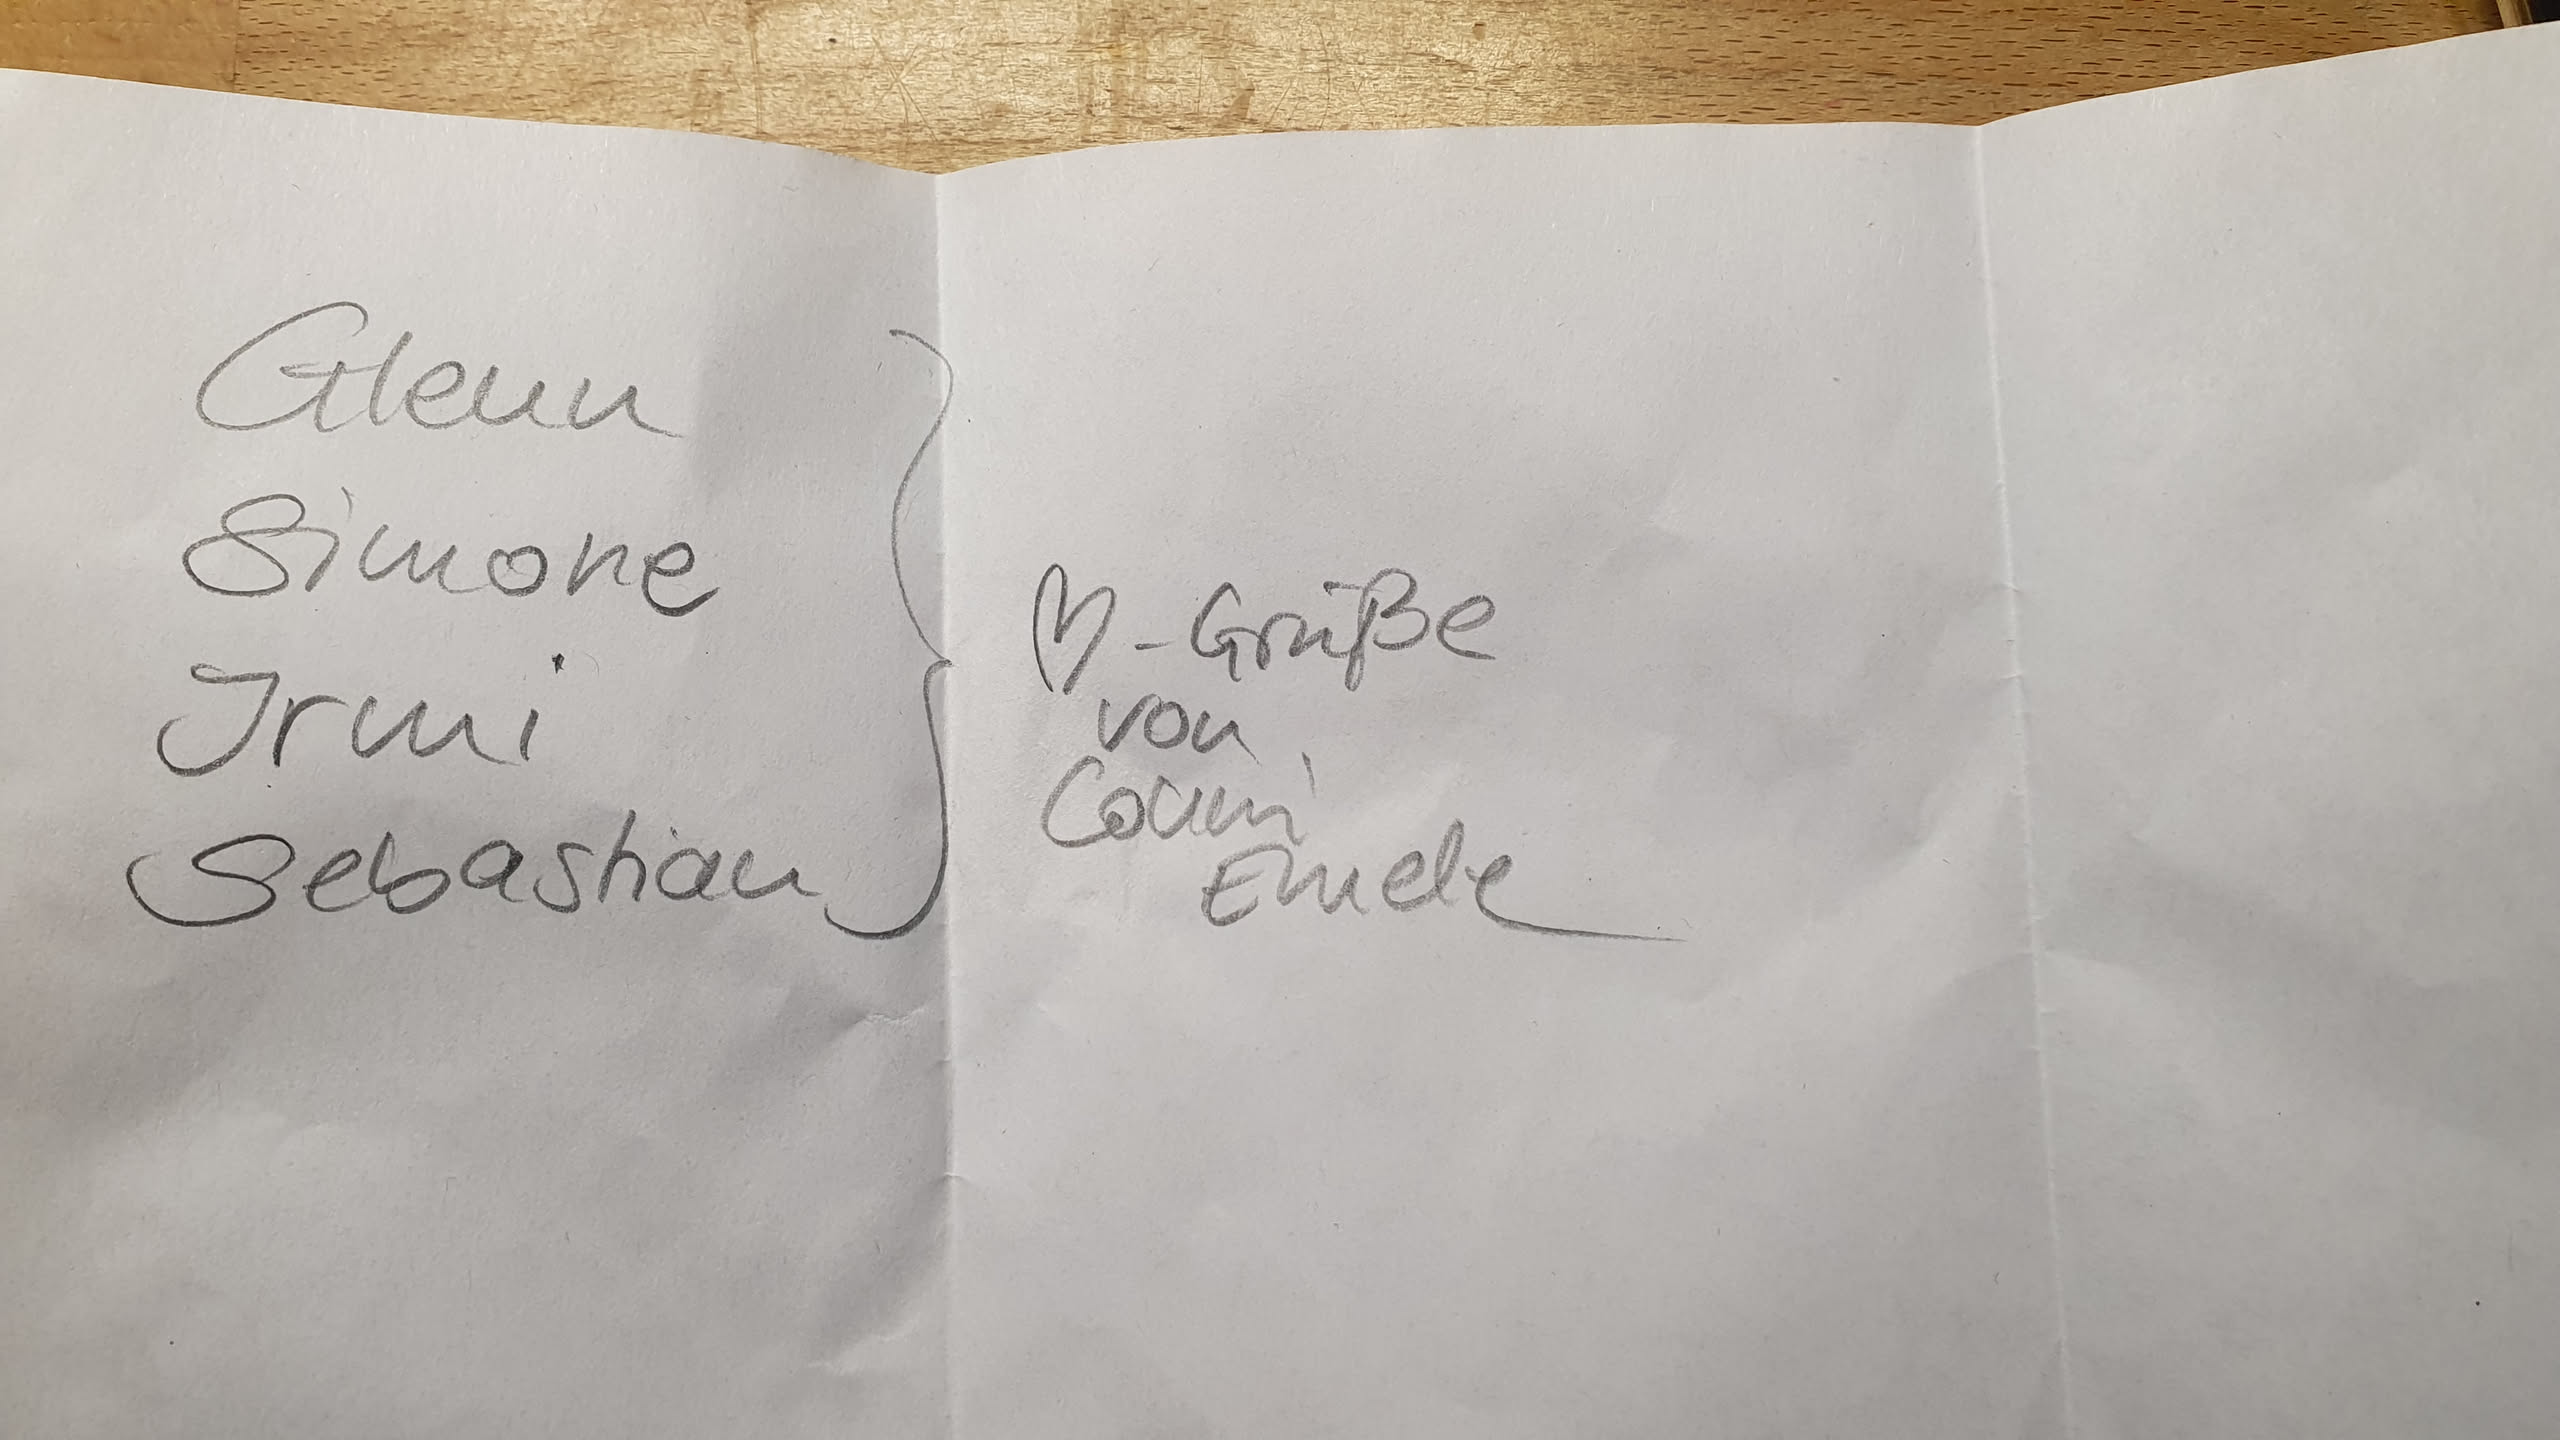 Glenn
Simone
Irmi
Sebastian
♡-Grüße
von
Conni